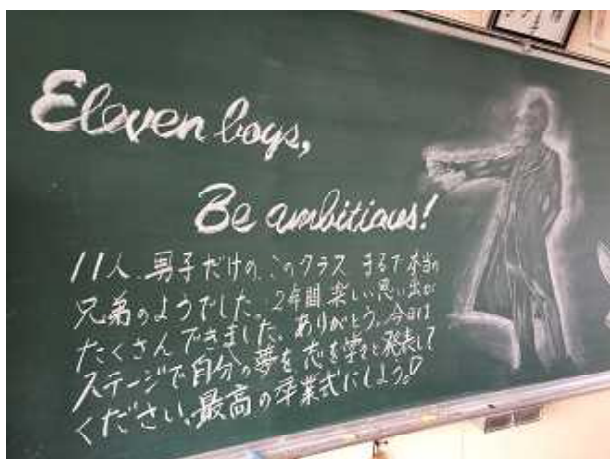 Eleven boys,
Be ambitious!
11人、男子だけの、このクラス まるで本当の
兄弟のようでした。2年間 楽しい思い出が
たくさんできました。ありがとう。今日は
ステージで自分の夢を 志を堂々と発表して
ください。最高の卒業式にしよう。